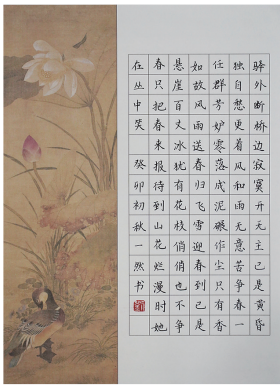 驿外断桥边寂寞开无主已是黄昏
独自愁更着风和雨无意苦争春一
任群芳妒零落成泥碾作尘只有香
如故风雨送春归飞雪迎春到已是
悬崖百丈冰犹有花枝俏俏也不争
春只把春来报待到山花烂漫时她
在丛中笑 癸卯初秋一然书